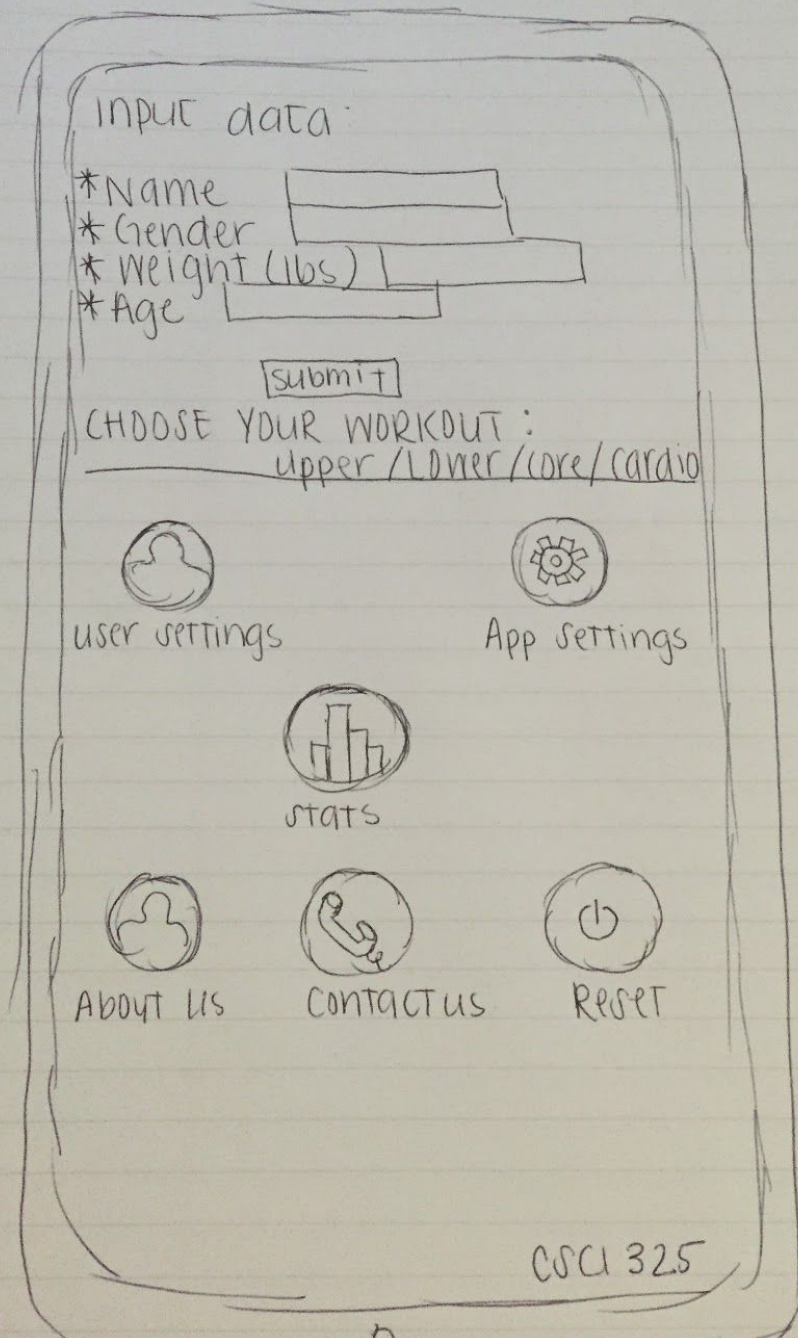 Input data:
*Name
*Gender
*Weight (lbs)
*Age
submit
CHOOSE YOUR WORKOUT:
Upper/Lower/core/cardio
user settings
App settings
stats
About Us
Contact us
Reset
CSCI 325